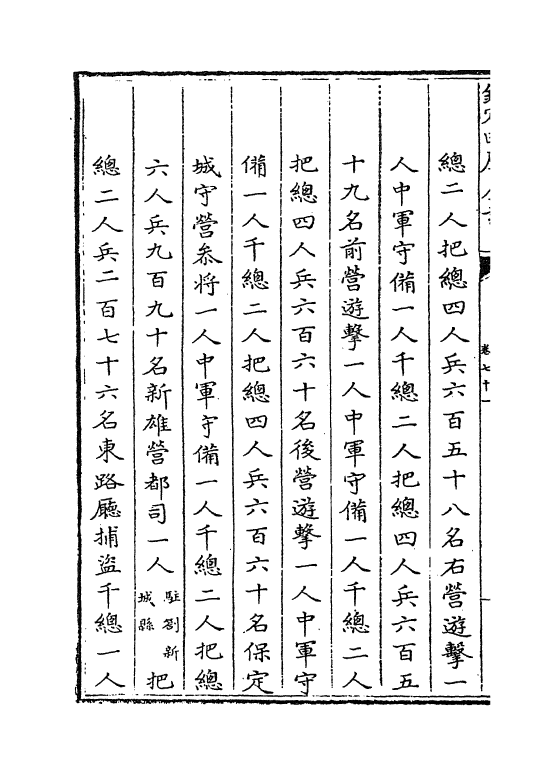 總二人把總四人兵六百五十八名右營遊擊一
人中軍守備一人千總二人把總四人兵六百五
十九名前營遊擊一人中軍守備一人千總二人
把總四人兵六百六十名後營遊擊一人中軍守
備一人千總二人把總四人兵六百六十名保定
城守營叅將一人中軍守備一人千總二人把總
六人兵九百九十名新雄營都司一人駐劄新城縣把
總二人兵二百七十六名東路廳捕盜千總一人
卷七十一